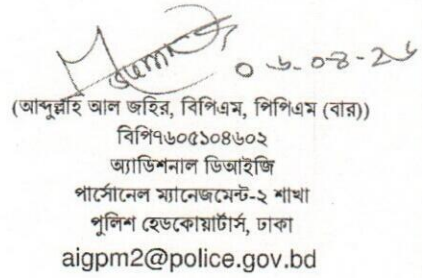 ০৬-০৪-২৬
(আব্দুল্লাহ আল জহির, বিপিএম, পিপিএম (বার))
বিপি৭৬০৫১০৪৬০২
অ্যাডিশনাল ডিআইজি
পার্সোনেল ম্যানেজমেন্ট-২ শাখা
পুলিশ হেডকোয়ার্টার্স, ঢাকা
aigpm2@police.gov.bd